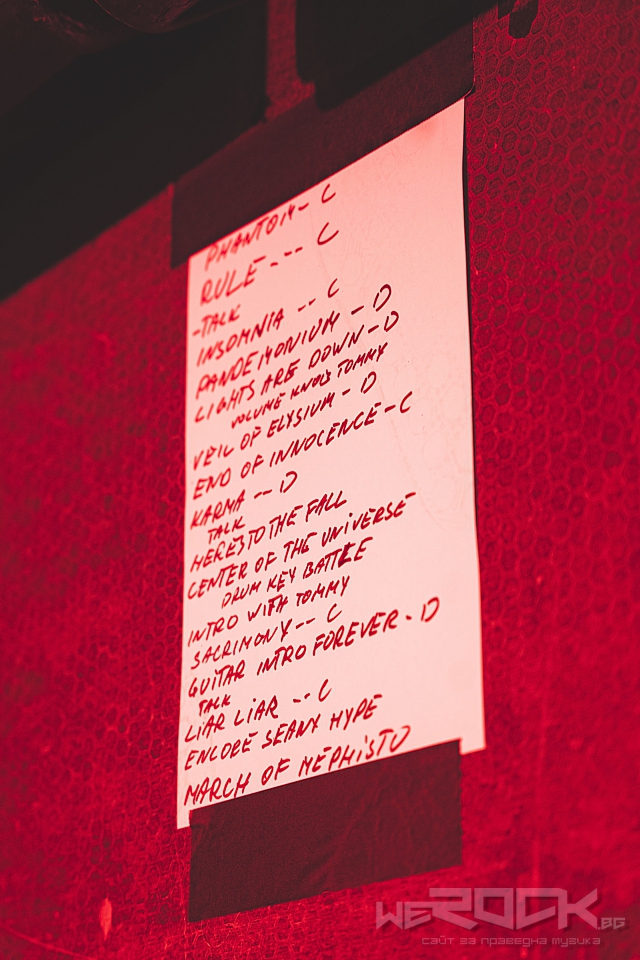 PHANTOM - C
RULE --- C
-TALK
INSOMNIA -- C
PANDEMONIUM - D
LIGHTS ARE DOWN - D
VOLUME KNOB TOMMY
VEIL OF ELYSIUM - D
END OF INNOCENCE - C
KARMA -- D
TALK
HERE'S TO THE FALL
CENTER OF THE UNIVERSE
DRUM KEY BATTLE
INTRO WITH TOMMY
SACRIMONY -- C
GUITAR INTRO FOREVER - D
TALK
LIAR LIAR -- C
ENCORE SEANX HYPE
MARCH OF MEPHISTO
WEROCK.BG
сайт за праведна музика